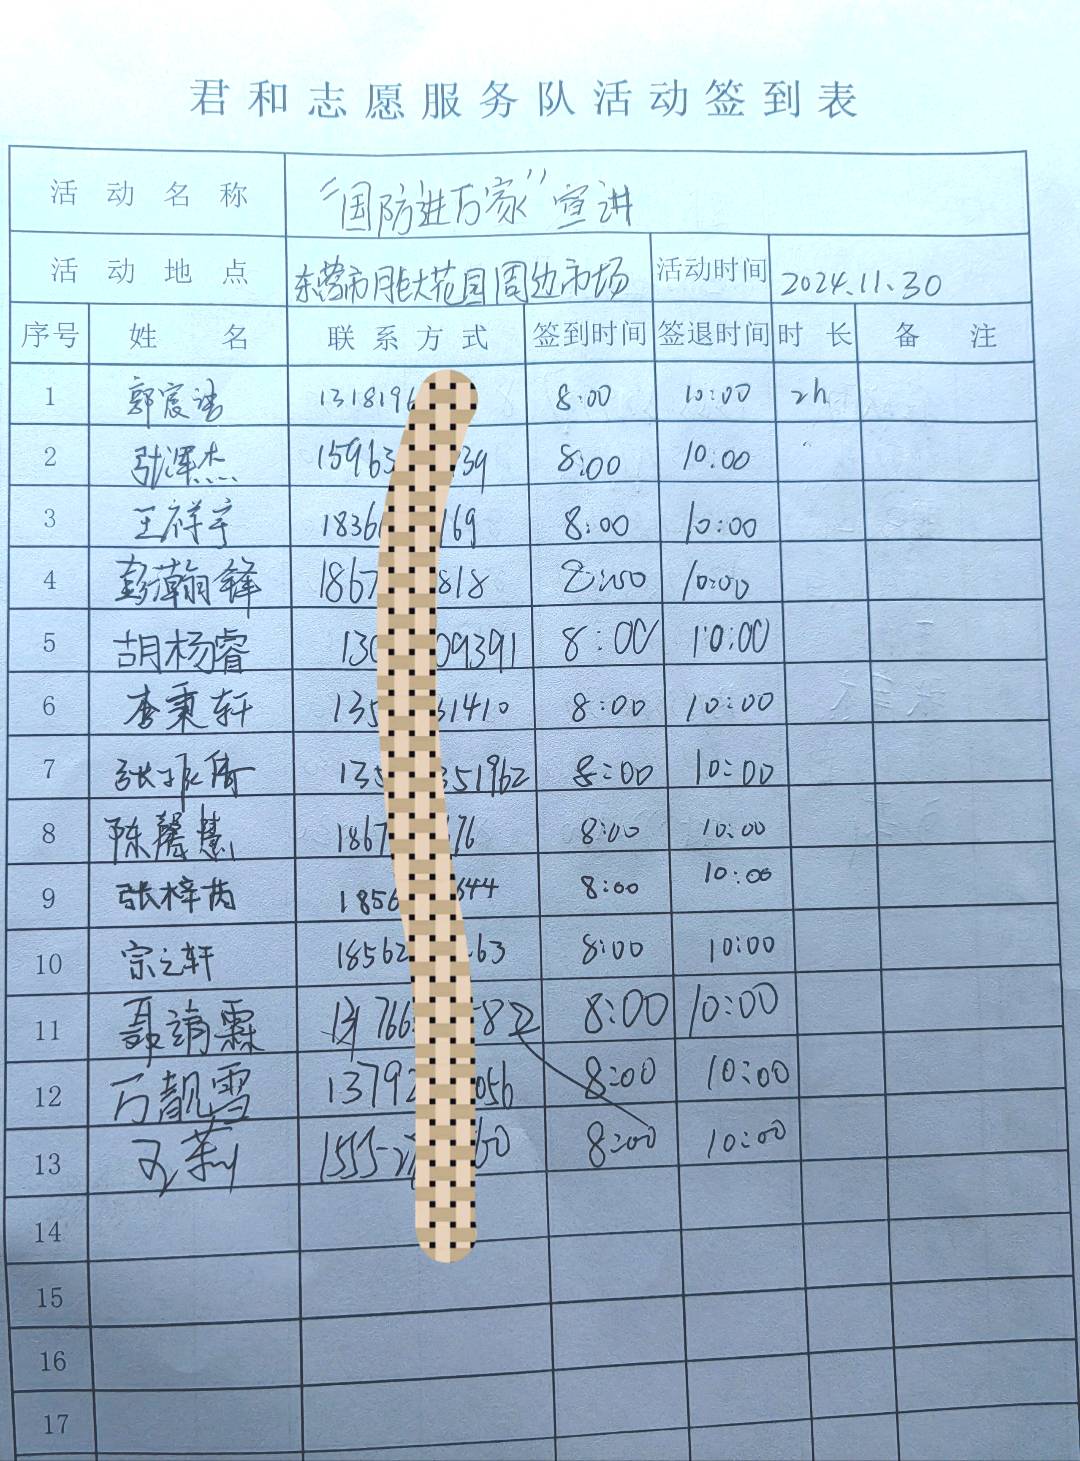 君和志愿服务队活动签到表
活动名称 “国防进万家”宣讲
活动地点 东营市胜大花园周边市场 活动时间 2024.11.30
序号 姓名 联系方式 签到时间 签退时间 时长 备注
1 郭宸浩 1318196 8:00 10:00 2h
2 张泽杰 15963 39 8:00 10:00
3 王祥宇 1836 169 8:00 10:00
4 彭瀚锋 1867 818 8:00 10:00
5 胡杨睿 130 09391 8:00 10:00
6 李秉轩 135 31410 8:00 10:00
7 张 135 351962 8:00 10:00
8 陈馨慧 1867 76 8:00 10:00
9 张梓芮 1856 644 8:00 10:00
10 宗之轩 18562 63 8:00 10:00
11 聂靖霖 766 58 8:00 10:00
12 万靓雪 13792 056 8:00 10:00
13 王莉 1555-2 60 8:00 10:00
14
15
16
17